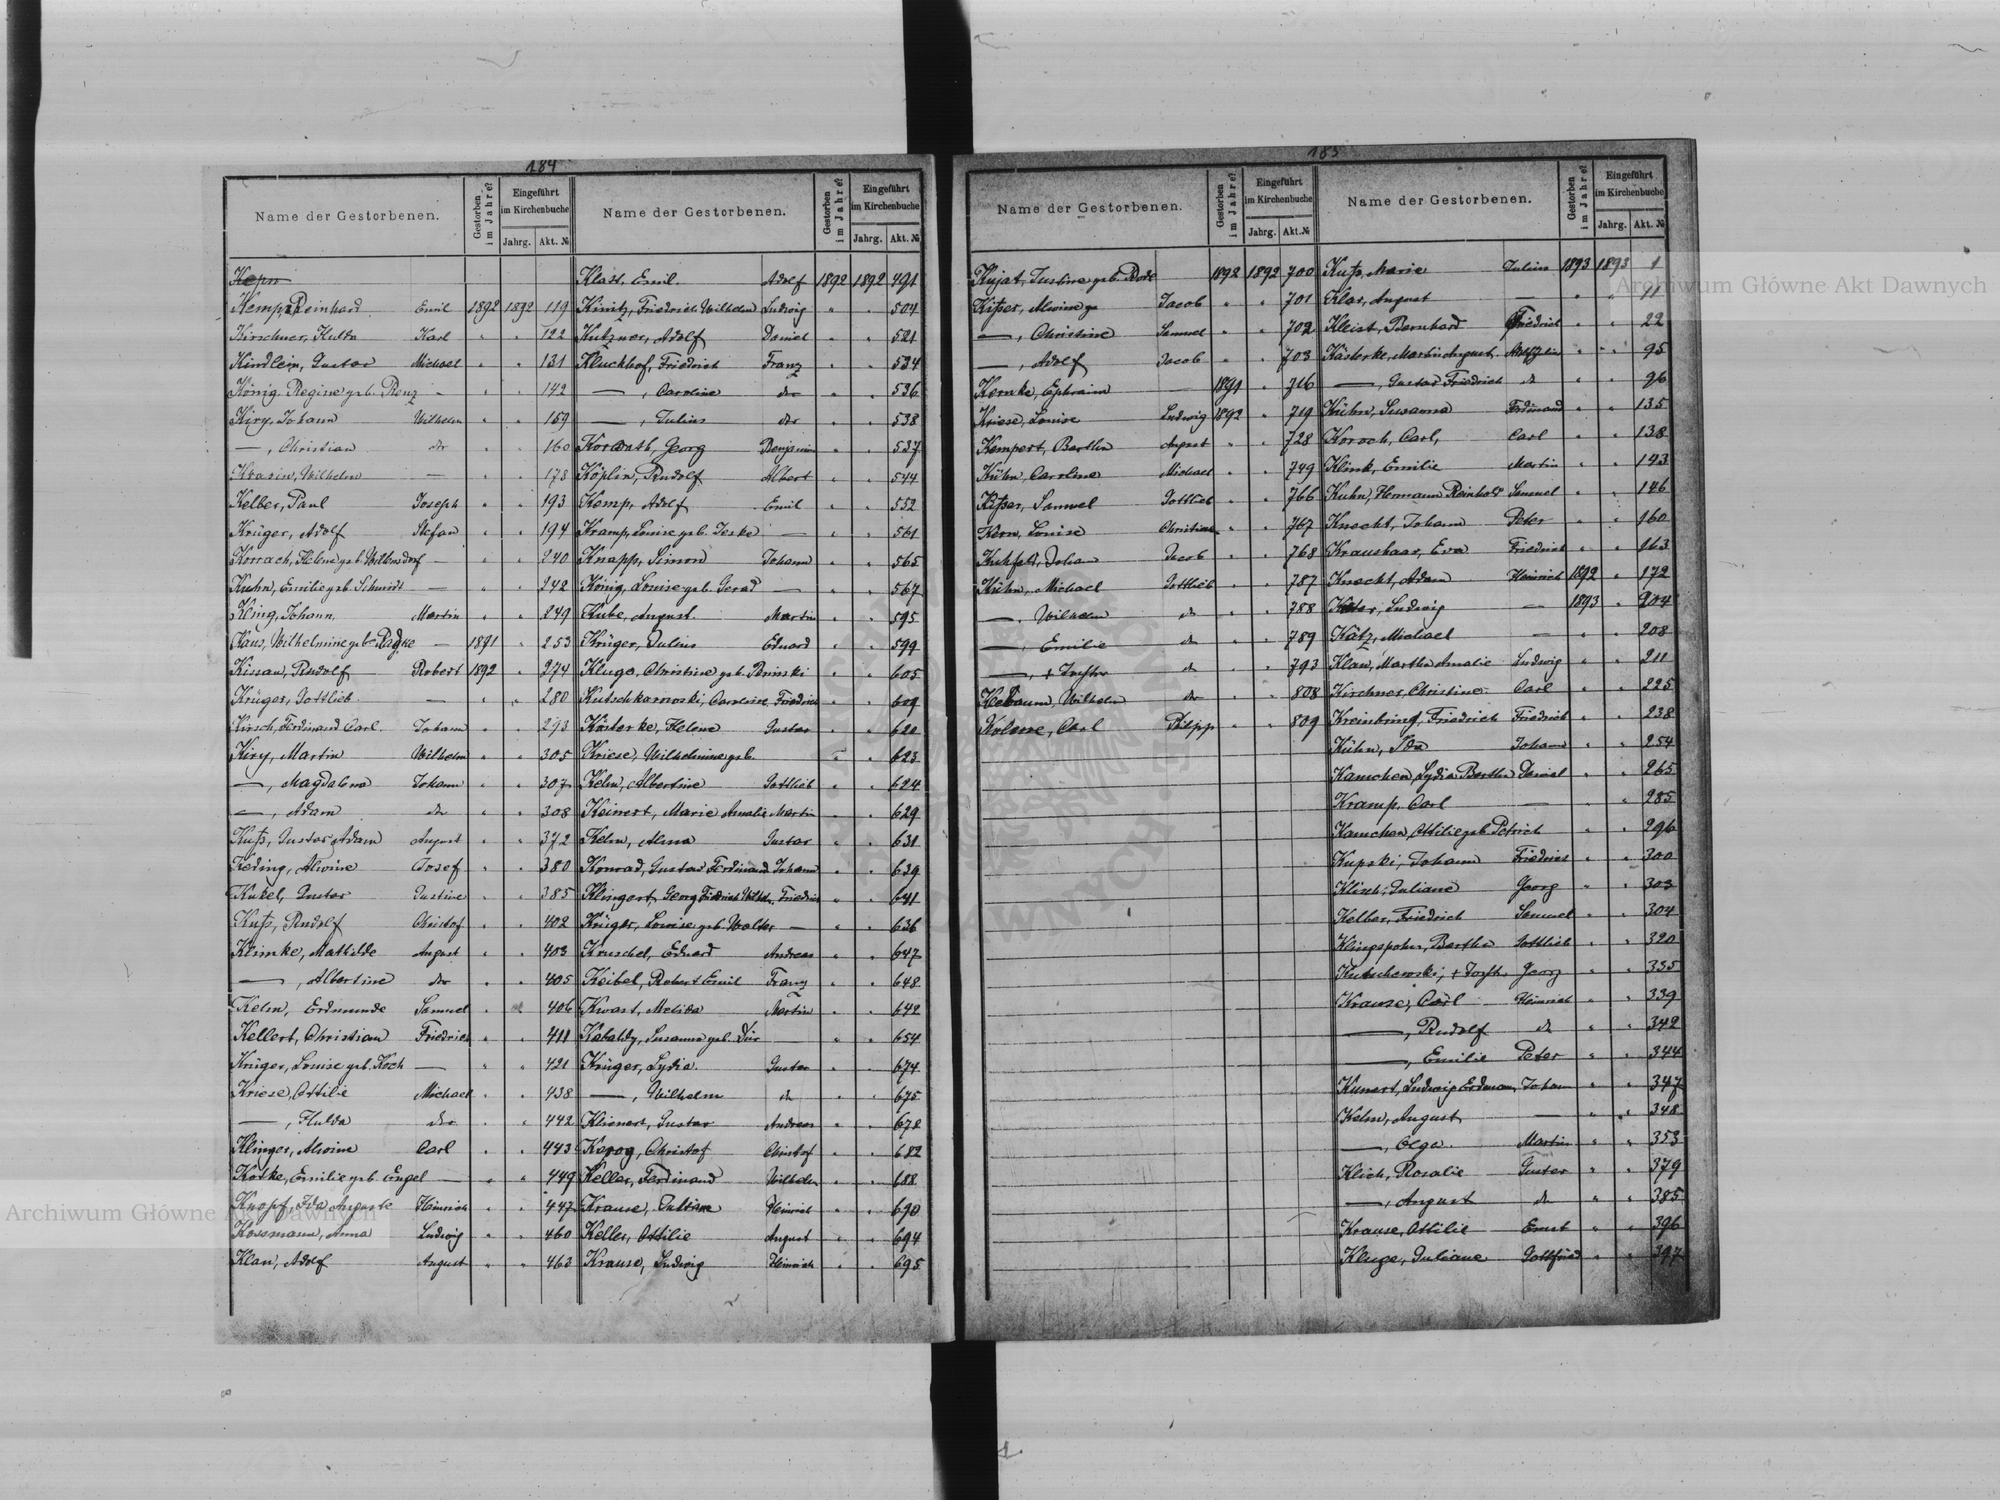 184
Name der Gestorbenen. Gestorben im Jahre? Eingeführt im Kirchenbuche Jahrg. Akt. №
Kemp, Reinhard Emil 1892 1892 119
Kirschner, Hulda Karl " " 122
Kindlein, Gustav Michael " " 131
König, Regine geb. Renz - " " 142
Kiry, Johann Wilhelm " " 159
—, Christian " " 160
Krasin, Wilhelm — " " 178
Kelber, Paul Joseph " " 193
Krüger, Adolf Stefan " " 194
Korrach, Helene geb. — " " 240
Kuhn, Emilie geb. Schmidt — " " 242
Kling, Johann Martin " " 249
Wilhelmine geb. — 1891 " 253
Kissau, Rudolf Robert 1892 " 274
Krüger, Gottlieb — " " 280
Kirsch, Ferdinand Carl Johann " " 293
Kiry, Martin Wilhelm " " 305
—, Magdalena Johann " " 307
—, Adam " " 308
Kuß, Gustav Adam August " " 372
Keding, Alwine Josef " " 380
Kukel, Gustav Justine " " 385
Kuß, Rudolf Christof " " 402
Klimke, Mathilde August " " 403
—, Albertine " " 405
Kelm, Erdmunde Samuel " " 406
Kellert, Christian Friedrich " " 411
Krüger, Louise geb. Koch — " " 421
Kriese, Ottilie Michael " " 438
—, Hulda " " 442
Klinger, Alwine Carl " " 443
Kotke, Emilie geb. Engel — " " 449
Knopf, Ida Auguste Heinrich " " 447
Kossmann, Anna Ludwig " " 460
Klau, Adolf August " " 463
Name der Gestorbenen. Gestorben im Jahre? Eingeführt im Kirchenbuche Jahrg. Akt. №
Klatt, Emil Adolf 1892 1892 491
Kinitz, Friedrich Wilhelm Ludwig " " 504
Kutzner, Adolf Daniel " " 521
Kluckhof, Friedrich Franz " " 534
—, Caroline " " 536
—, Julius " " 538
Georg Benjamin " " 537
Köplin, Rudolf Albert " " 544
Kemp, Adolf Emil " " 552
Kramp, Louise geb. Jeske — " " 561
Knapp, Simon Johann " " 565
König, Louise geb. — " " 567
Kube, August Martin " " 595
Krüger, Julius Eduard " " 599
Kluge, Christine geb. " " 605
Caroline Friedrich " " 609
Kösterke, Helene Gustav " " 620
Kriese, Wilhelmine geb. " " 623
Kelm, Albertine Gottlieb " " 624
Keinert, Marie Amalie Martin " " 629
Kelm, Alma Gustav " " 631
Konrad, Gustav Ferdinand Johann " " 639
Klingert, Georg Friedrich Wilhelm Friedrich " " 641
Krüger, Louise geb. Wolter — " " 636
Kruschel, Eduard Andreas " " 647
Keibel, Robert Emil Franz " " 648
Kwast, Melida Martin " " 642
Susanna geb. — " " 654
Krüger, Lydia Gustav " " 674
—, Wilhelm " " 675
Klienert, Gustav Andreas " " 678
Christof Christof " " 682
Keller, Ferdinand Wilhelm " " 688
Krause, Juliane Heinrich " " 690
Keller, Ottilie August " " 694
Krause, Ludwig Heinrich " " 695
185
Name der Gestorbenen. Gestorben im Jahre? Eingeführt im Kirchenbuche Jahrg. Akt. №
Kujat, Justine geb. Rode 1892 1892 700
Kißer, Alwine Jacob " " 701
—, Christine Samuel " " 702
—, Adolf Jacob " " 703
Kemke, Ephraim — 1891 " 716
Kriese, Louise Ludwig 1892 " 719
Kempert, Bertha August " " 728
Kühn, Caroline Michael " " 749
Kißer, Samuel Gottlieb " " 766
Kern, Louise Christian " " 767
Johan Jacob " " 768
Kühn, Michael Gottlieb " " 787
—, Wilhelm " " 788
—, Emilie " " 789
— " " 793
Klebaum, Wilhelm " " 808
Carl Philipp " " 809
Name der Gestorbenen. Gestorben im Jahre? Eingeführt im Kirchenbuche Jahrg. Akt. №
Kuß, Marie Julius 1893 1893 1
Klar, August — " " 11
Kleist, Bernhard Friedrich " " 22
Kästerke, Martin August " " 95
—, Gustav Friedrich " " 96
Kühn, Susanna Ferdinand " " 135
Koroch, Carl Carl " " 138
Klink, Emilie Martin " " 143
Kuhn, Hermann Reinhold Samuel " " 146
Knecht, Johann Peter " " 160
Kraushaar, Eva Friedrich " " 163
Knecht, Adam Heinrich 1892 " 172
Ludwig — 1893 " 204
Kätz, Michael — " " 208
Klau, Martha Amalie Ludwig " " 211
Kirchner, Christine Carl " " 225
Kreinbring, Friedrich Friedrich " " 238
Kühn, Ida Johann " " 254
Kamchen, Lydia Bertha Daniel " " 265
Kramp, Carl — " 285
Kamchen, Ottilie geb. Petrich " " 296
Kupski, Johann Friedrich " " 300
Juliane Georg " " 303
Kelber, Friedrich Samuel " " 304
Klingspohn, Bertha Gottlieb " " 320
Georg " " 335
Krause, Carl Heinrich " " 339
—, Rudolf " " 342
—, Emilie Peter " " 344
Kunert, Ludwig Erdmann Johann " " 347
Kelm, August — " " 348
—, Olga Martin " " 353
Klich, Rosalie Gustav " " 379
—, August " " 385
Krause, Ottilie Ernst " " 396
Kluge, Juliane Gottfried " " 397
Archiwum Główne Akt Dawnych
Archiwum Główne Akt Dawnych